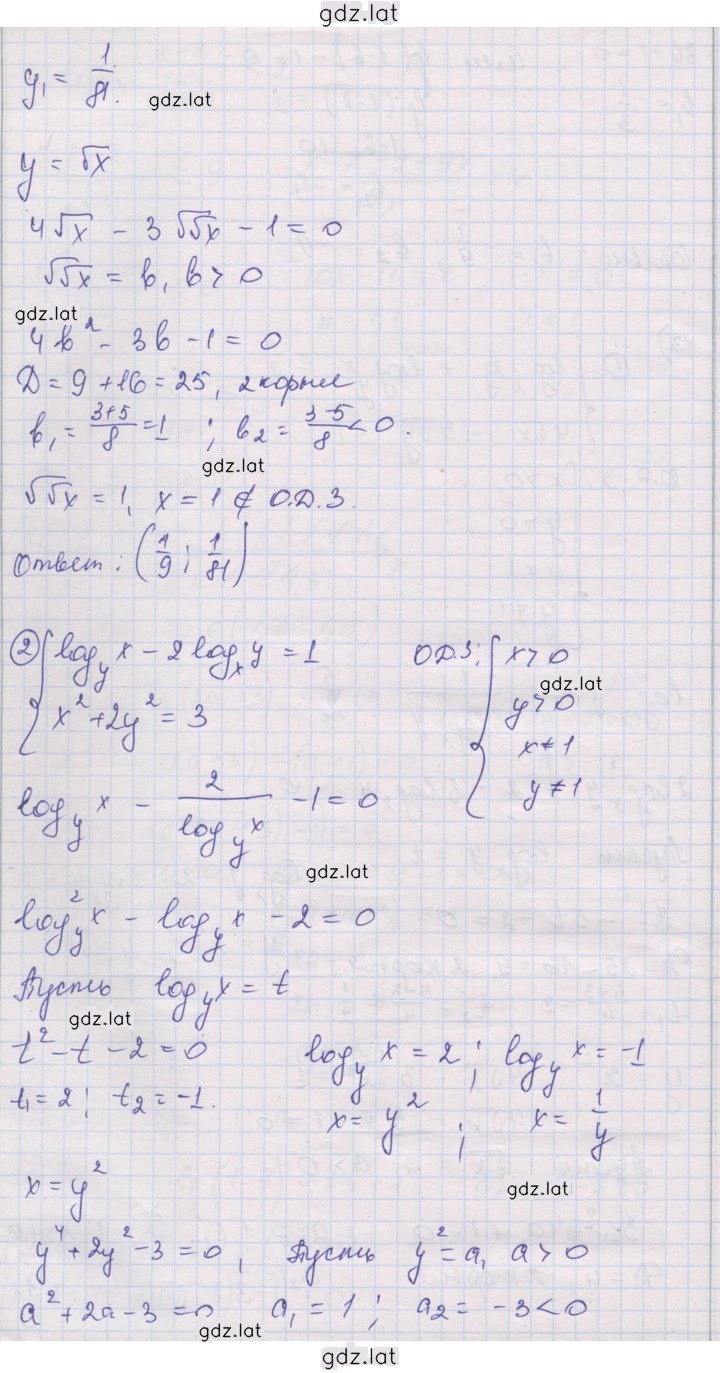 gdz.lat
y₁ = 1/81.
gdz.lat
y = √x
4√x - 3√√x - 1 = 0
√√x = b, b > 0
gdz.lat
4b² - 3b - 1 = 0
D = 9 + 16 = 25, 2 корня
b₁ = (3+5)/8 = 1 ; b₂ = (3-5)/8 < 0.
gdz.lat
√√x = 1, x = 1 ∉ О.Д.З.
Ответ: (1/9; 1/81)
② { log_y x - 2 log_x y = 1
x² + 2y² = 3
ОДЗ: { x > 0
gdz.lat
y > 0
x ≠ 1
y ≠ 1
log_y x - 2/(log_y x) - 1 = 0
gdz.lat
log²_y x - log_y x - 2 = 0
Пусть log_y x = t
gdz.lat
t² - t - 2 = 0
t₁ = 2 ; t₂ = -1.
log_y x = 2 ; log_y x = -1
x = y² ; x = 1/y
x = y²
gdz.lat
y⁴ + 2y² - 3 = 0, Пусть y² = a, a > 0
a² + 2a - 3 = 0 a₁ = 1 ; a₂ = -3 < 0
gdz.lat
gdz.lat